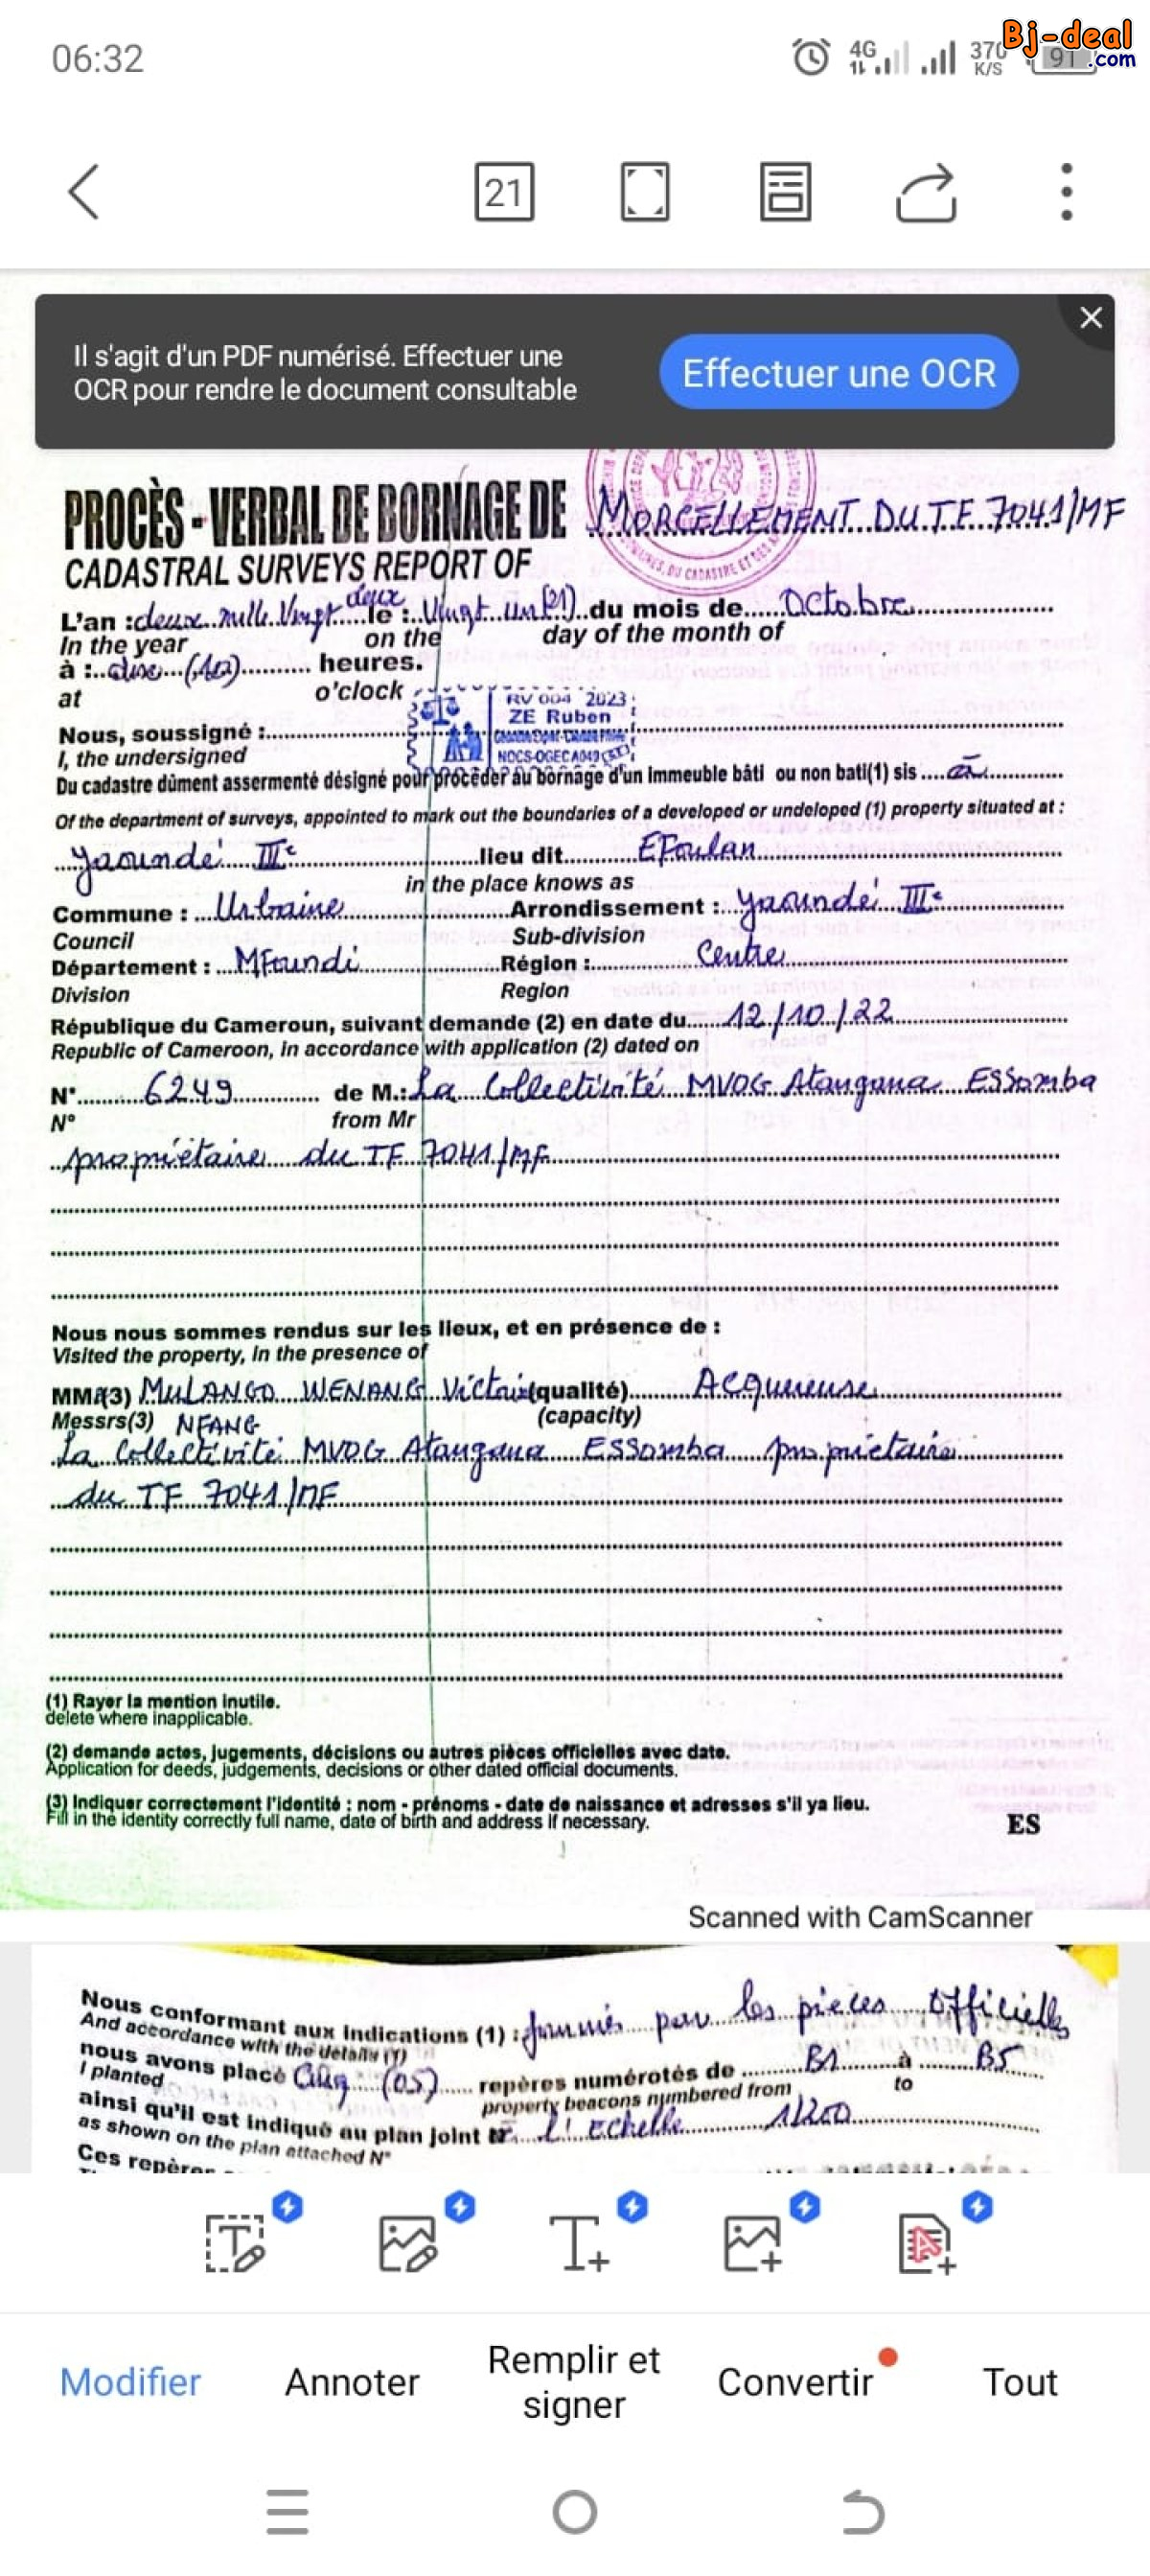 06:32
4G
370
K/S
91
Bj-deal
.com
21
Il s'agit d'un PDF numérisé. Effectuer une
OCR pour rendre le document consultable
Effectuer une OCR
PROCÈS - VERBAL DE BORNAGE DE MORCELLEMENT DU T.F. 7041/MF
CADASTRAL SURVEYS REPORT OF
deux
L'an : deux mille Vingt le : Vingt un (21) du mois de Octobre
In the year on the day of the month of
à : dix (10) heures.
at o'clock
RV 004 2023
ZE Ruben
Nous, soussigné :
I, the undersigned
Du cadastre dûment assermenté désigné pour procéder au bornage d'un immeuble bâti ou non bati(1) sis à
Of the department of surveys, appointed to mark out the boundaries of a developed or undeloped (1) property situated at :
Yaoundé IIIe lieu dit EFoulan
in the place knows as
Commune : Urbaine Arrondissement : Yaoundé IIIe
Council Sub-division
Département : MFoundi Région : Centre
Division Region
République du Cameroun, suivant demande (2) en date du 12/10/22
Republic of Cameroon, in accordance with application (2) dated on
N° 6249 de M.: La Collectivité MVOG Atangana ESSomba
N° from Mr
propriétaire du TF 7041/MF
Nous nous sommes rendus sur les lieux, et en présence de :
Visited the property, in the presence of
MM.(3) MULANGO WENANG Victoire (qualité) Acquereuse
Messrs(3) NFANG (capacity)
La Collectivité MVOG Atangana ESSomba propriétaire
du TF 7041/MF
(1) Rayer la mention inutile.
delete where inapplicable.
(2) demande actes, jugements, décisions ou autres pièces officielles avec date.
Application for deeds, judgements, decisions or other dated official documents.
(3) Indiquer correctement l'identité : nom - prénoms - date de naissance et adresses s'il ya lieu.
Fill in the identity correctly full name, date of birth and address if necessary.
ES
Scanned with CamScanner
Nous conformant aux indications (1) : fournies par les pièces Officielles
And accordance with the details (1)
nous avons placé Cinq (05) repères numérotés de B1 à B5
I planted property beacons numbered from to
ainsi qu'il est indiqué au plan joint l'Echelle 1/200
as shown on the plan attached N°
Ces
Modifier
Annoter
Remplir et
signer
Convertir
Tout